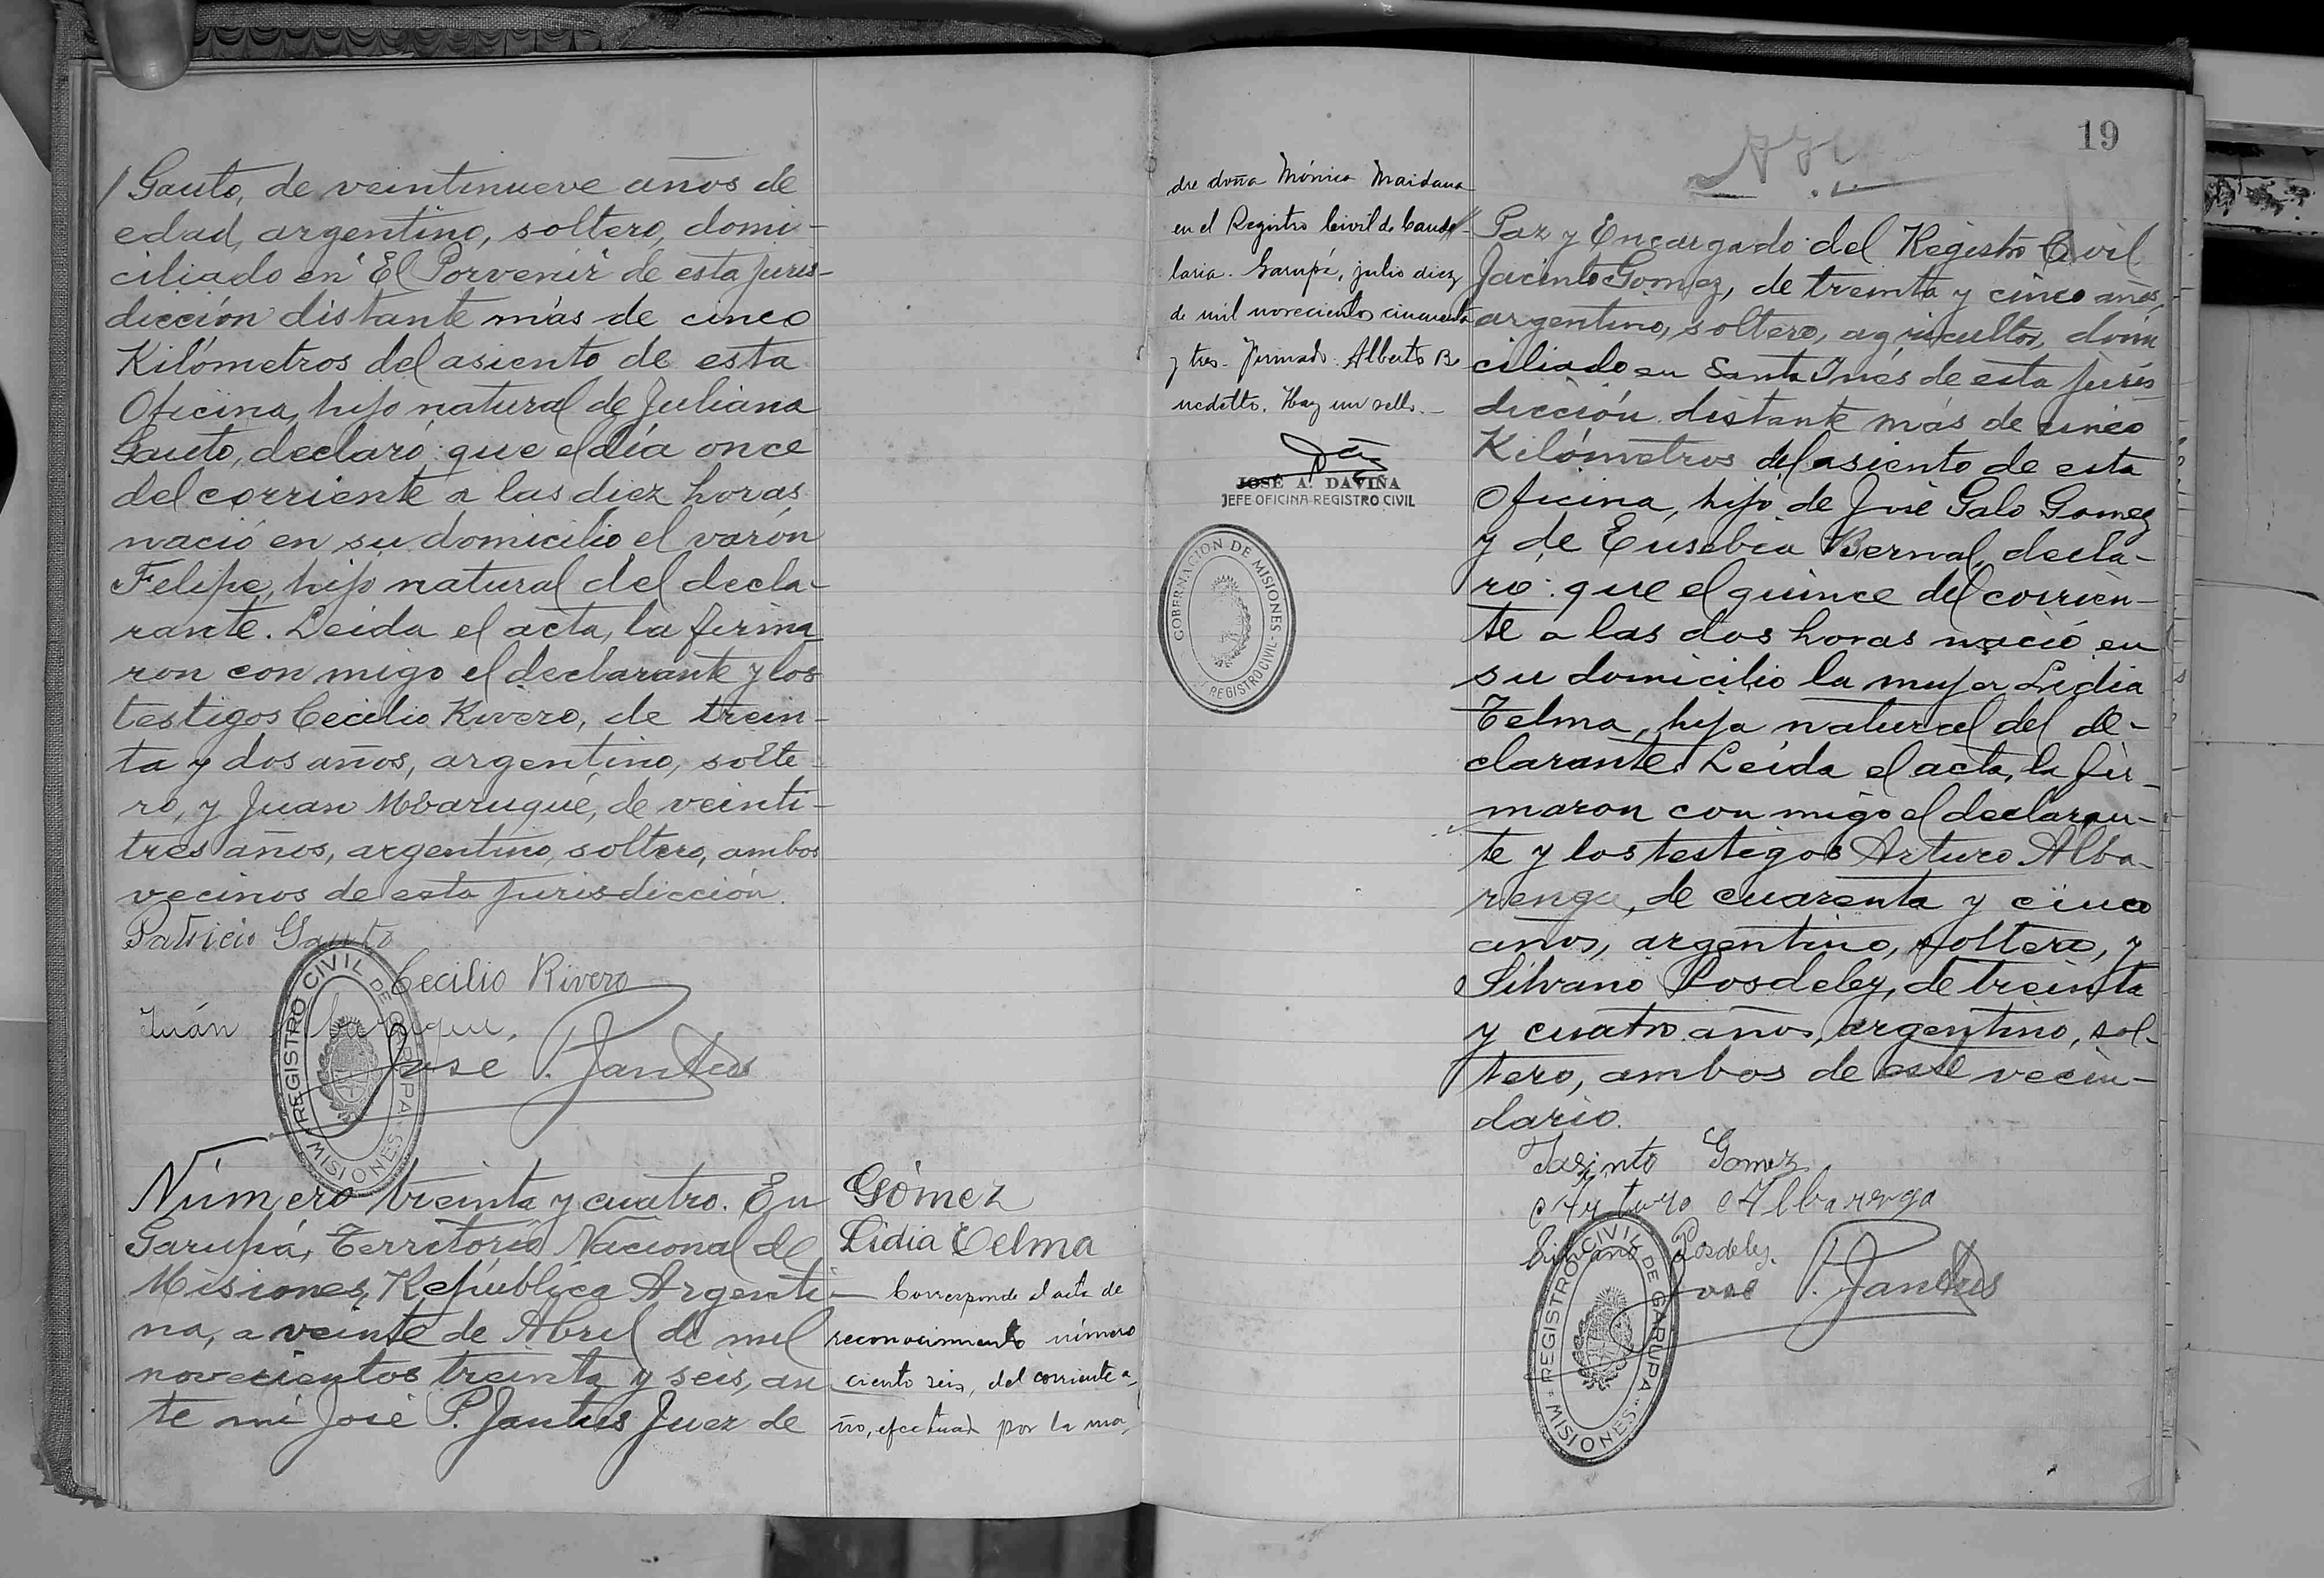 Gauto, de veintinueve años de
edad, argentino, soltero, domi-
ciliado en "El Porvenir" de esta juris-
dicción distante más de cinco
Kilómetros del asiento de esta
Oficina, hijo natural de Juliana
Gauto, declaró: que el día once
del corriente a las diez horas
nació en su domicilio el varón
Felipe, hijo natural del decla-
rante. Leída el acta, la firma
ron con migo el declarante y los
testigos Cecilio Rivero, de trein-
ta y dos años, argentino, solte-
ro, y Juan Mbarugué, de veinti-
tres años, argentino, soltero, ambos
vecinos de esta jurisdicción.
Patricio Gauto
Cecilio Rivero
Juán
José P. Jantus
REGISTRO CIVIL DE GARUPA
MISIONES
Número treinta y cuatro. En
Garupá, Territorio Nacional de
Misiones, República Argenti-
na, a veinte de Abril de mil
novecientos treinta y seis, an
te mí José P. Jantus Juez de
Gómez
Lidia Telma
Corresponde al acta de
reconocimiento número
ciento seis, del corriente a-
ño, efectuada por la ma-
dre doña Mónica Maidana
en el Registro Civil de Cande-
laria. Garupá, julio diez
de mil novecientos cincuenta
y tres. Firmado: Alberto Be
nedetto. Hay un sello.-
JOSÉ A. DAVIÑA
JEFE OFICINA REGISTRO CIVIL
GOBERNACION DE MISIONES
REGISTRO CIVIL
19
Paz y Encargado del Registro Civil
Jacinto Gomez, de treinta y cinco años,
argentino, soltero, agricultor, domi
ciliado en Santa Inés de esta juris
dicción distante más de cinco
Kilómetros del asiento de esta
Oficina, hijo de José Galo Gomez
y de Eusebia Bernal, decla-
ró: que el quince del corrien-
te a las dos horas nació en
su domicilio la mujer Lidia
Telma, hija natural del de-
clarante. Leída el acta, la fir-
maron con migo el declaran-
te y los testigos Arturo Alba-
renga, de cuarenta y cinco
años, argentino, soltero, y
Silvano Posdeley, de treinta
y cuatro años, argentino, sol-
tero, ambos de este vecin-
dario.
Jasinto Gomez
Arturo Albarenga
Silvano Posdeley.
José P. Jantus
REGISTRO CIVIL DE GARUPA
MISIONES